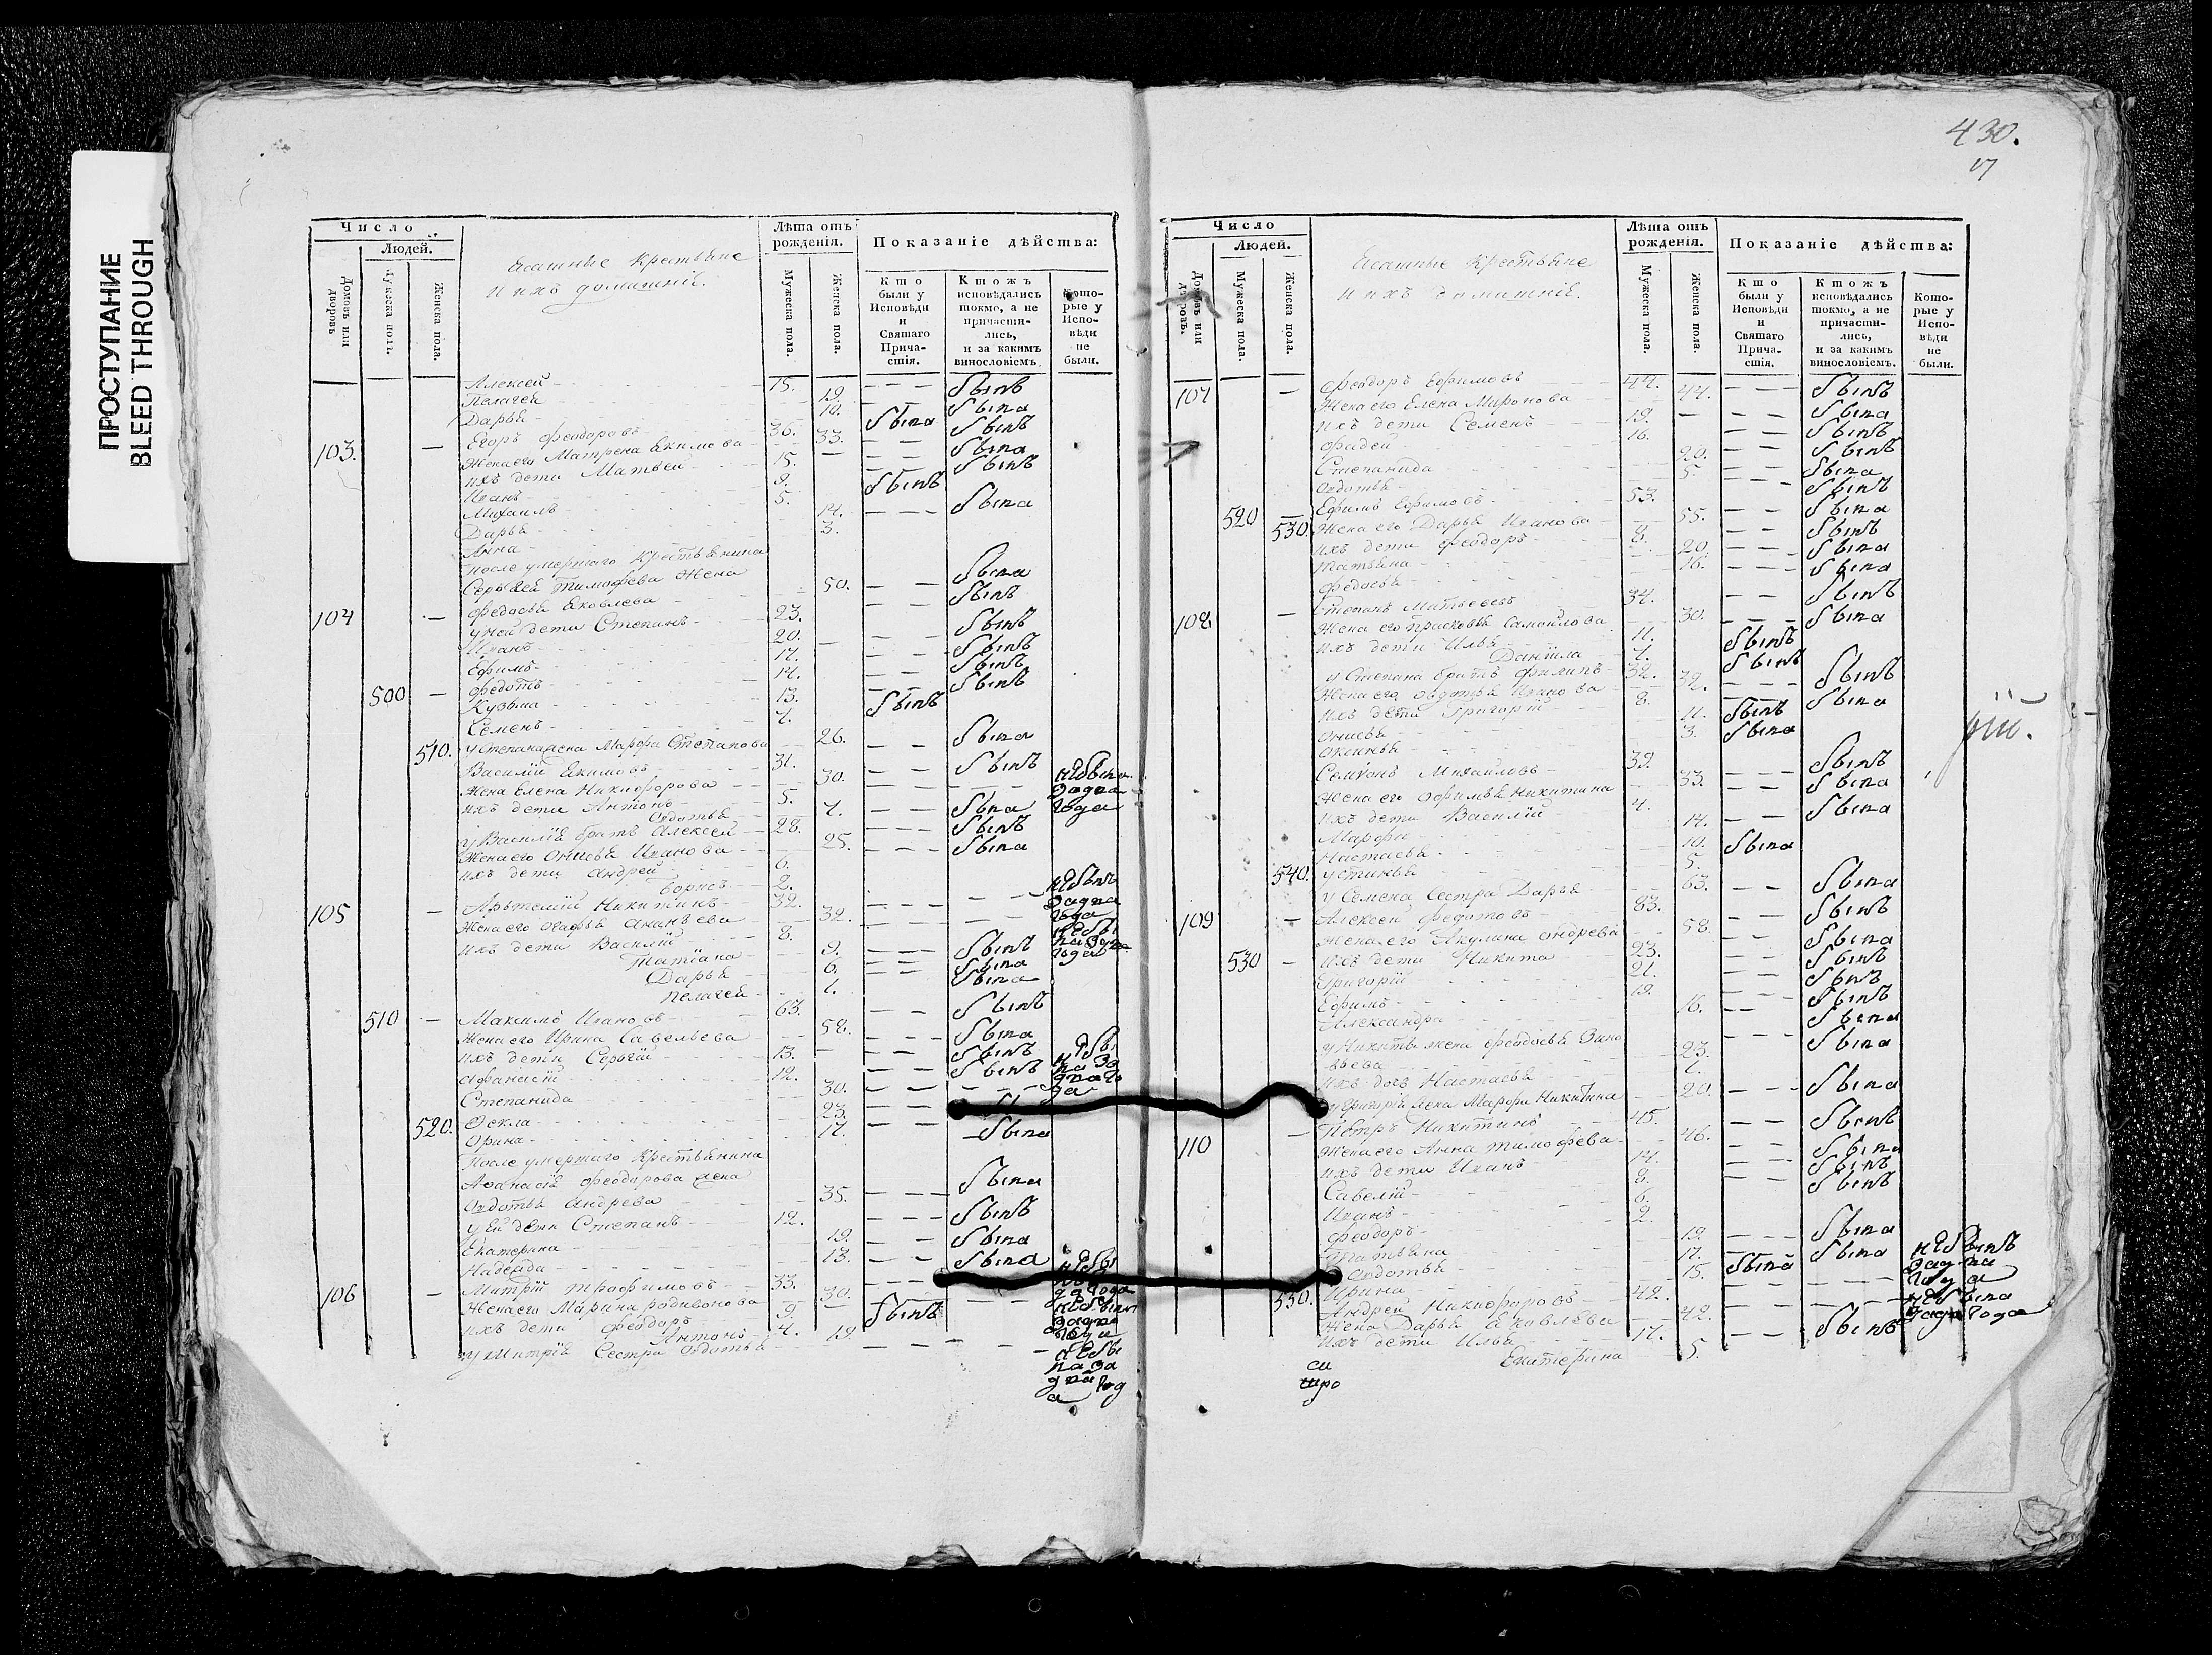 ПРОСТУПАНИЕ
BLEED THROUGH
430.
17
Число
Людей.
Домовъ или дворовъ
Мужеска пол.
Женска пола.
Ясашные крестьяне
и ихъ домашніе.
Лѣта отъ рожденія.
Мужеска пола.
Женска пола.
Показаніе дѣйства:
Кто были у Исповѣди и Святаго Прича-стія.
Ктожъ исповѣдались токмо, а не причасти-лись, и за какимъ винословіемъ.
Кото-рые у Испо-вѣди не были.
Алексей 15. былъ
Пелагея 12. была
Дарья 10. была
103. Егоръ Феодоровъ 36. былъ
Жена его Матрена Екимова 33. была
ихъ дети Матвей 15. былъ
Иванъ 9. былъ
Михаилъ 5.
Дарья 14. была
Анна 3.
После умершаго крестьянина
Сергея Тимофеева жена
Федосья Яковлева 50. была
104 у ней дети Степанъ 23. былъ
Иванъ 20. былъ
Ефимъ 17. былъ
500 Федотъ 14. былъ
Кузьма 13. былъ
Семенъ 7. былъ
510. у Степана жена Марфа Степанова 26. была
Василий Екимовъ 31. былъ
Жена Елена Никифорова 30. не была
ихъ дети Антонъ 5.
Авдотья 7. была
у Василья братъ Алексей 28. былъ
Жена его Онисья Иванова 25. была
ихъ дети Андрей 6.
Борисъ 2.
105 Артемий Никитинъ 32.
Жена его Агафья Ананьева 32.
ихъ дети Василий 8. былъ
Татіана 9. была
Дарья 6. была
Пелагея 1.
510 Максимъ Ивановъ 63. былъ
Жена его Ирина Савельева 58. была
ихъ дети Сергей 13. былъ
Афанасей 12. былъ
Степанида 30.
Фекла 23.
520. Орина 17. была
После умершаго крестьянина
Афанасія Феодорова жена
Авдотья Андреева 35. была
у ей дети Степанъ 12. былъ
Екатерина 19. была
Надежда 13. была
106 Митрій Трофимовъ 33.
Жена его Марина Родивонова 30.
ихъ дети Феодоръ 9. былъ
Антонъ 4.
у Митрія сестра Авдотья 19.
Число
Людей.
Домовъ или дворовъ.
Мужеска пола.
Женска пола.
Ясашные крестьяне
и ихъ домашніе.
Лѣта отъ рожденія.
Мужеска пола.
Женска пола.
Показаніе дѣйства:
Кто были у Исповѣди и Святаго Прича-стія.
Ктожъ исповѣдались токмо, а не причасти-лись, и за какимъ винословіемъ.
Кото-рые у Испо-вѣди не были.
107 Феодоръ Ефимовъ 44. былъ
Жена его Елена Миронова 44. была
ихъ дети Семенъ 19. былъ
Фадей 16. былъ
Степанида 20. была
Авдотья 5.
520 Ефимъ Ефимовъ 53. былъ
530. Жена его Дарья Иванова 55. была
ихъ дети Феодоръ 8. былъ
Татьяна 20. была
Федосья 16. была
108 Степанъ Матвеевъ 34. былъ
Жена его Прасковья Самойлова 30. была
ихъ дети Илья 11. былъ
Данила 7. былъ
у Степана братъ Филипъ 32. былъ
Жена его Авдотья Иванова 32. была
ихъ дети Григорій 8. былъ
Онисья 11. была
Оксинья 3.
Семіонъ Михайловъ 39. былъ
Жена его Офимья Никитина 33. была
ихъ дети Василій 4.
Марфа 14. была
Настасья 10. была
540. Устинья 5.
у Семена сестра Дарья 63. была
109 Алексей Федотовъ 83. былъ
Жена его Акулина Андрева 58. была
530 ихъ дети Никита 23. былъ
Григорій 21. былъ
Ефимъ 19. былъ
Александра 16. была
у Никиты жена Феодосья Зино
вьева 23. была
ихъ дочь Настасья
у Григорія жена Марфа Никитина 20. была
110 Петръ Никитинъ 45. былъ
Жена его Анна Тимофева 46. была
ихъ дети Иванъ 14. былъ
Савелій 8. былъ
Иванъ 6.
Феодоръ 2.
Татьяна 19. была
Авдотья 17. была
550. Ирина 15. была
Андрей Никифоровъ 42. не былъ
Жена Дарья Яковлева 42. не была
ихъ дети Илья 17. былъ
Екатерина 5.